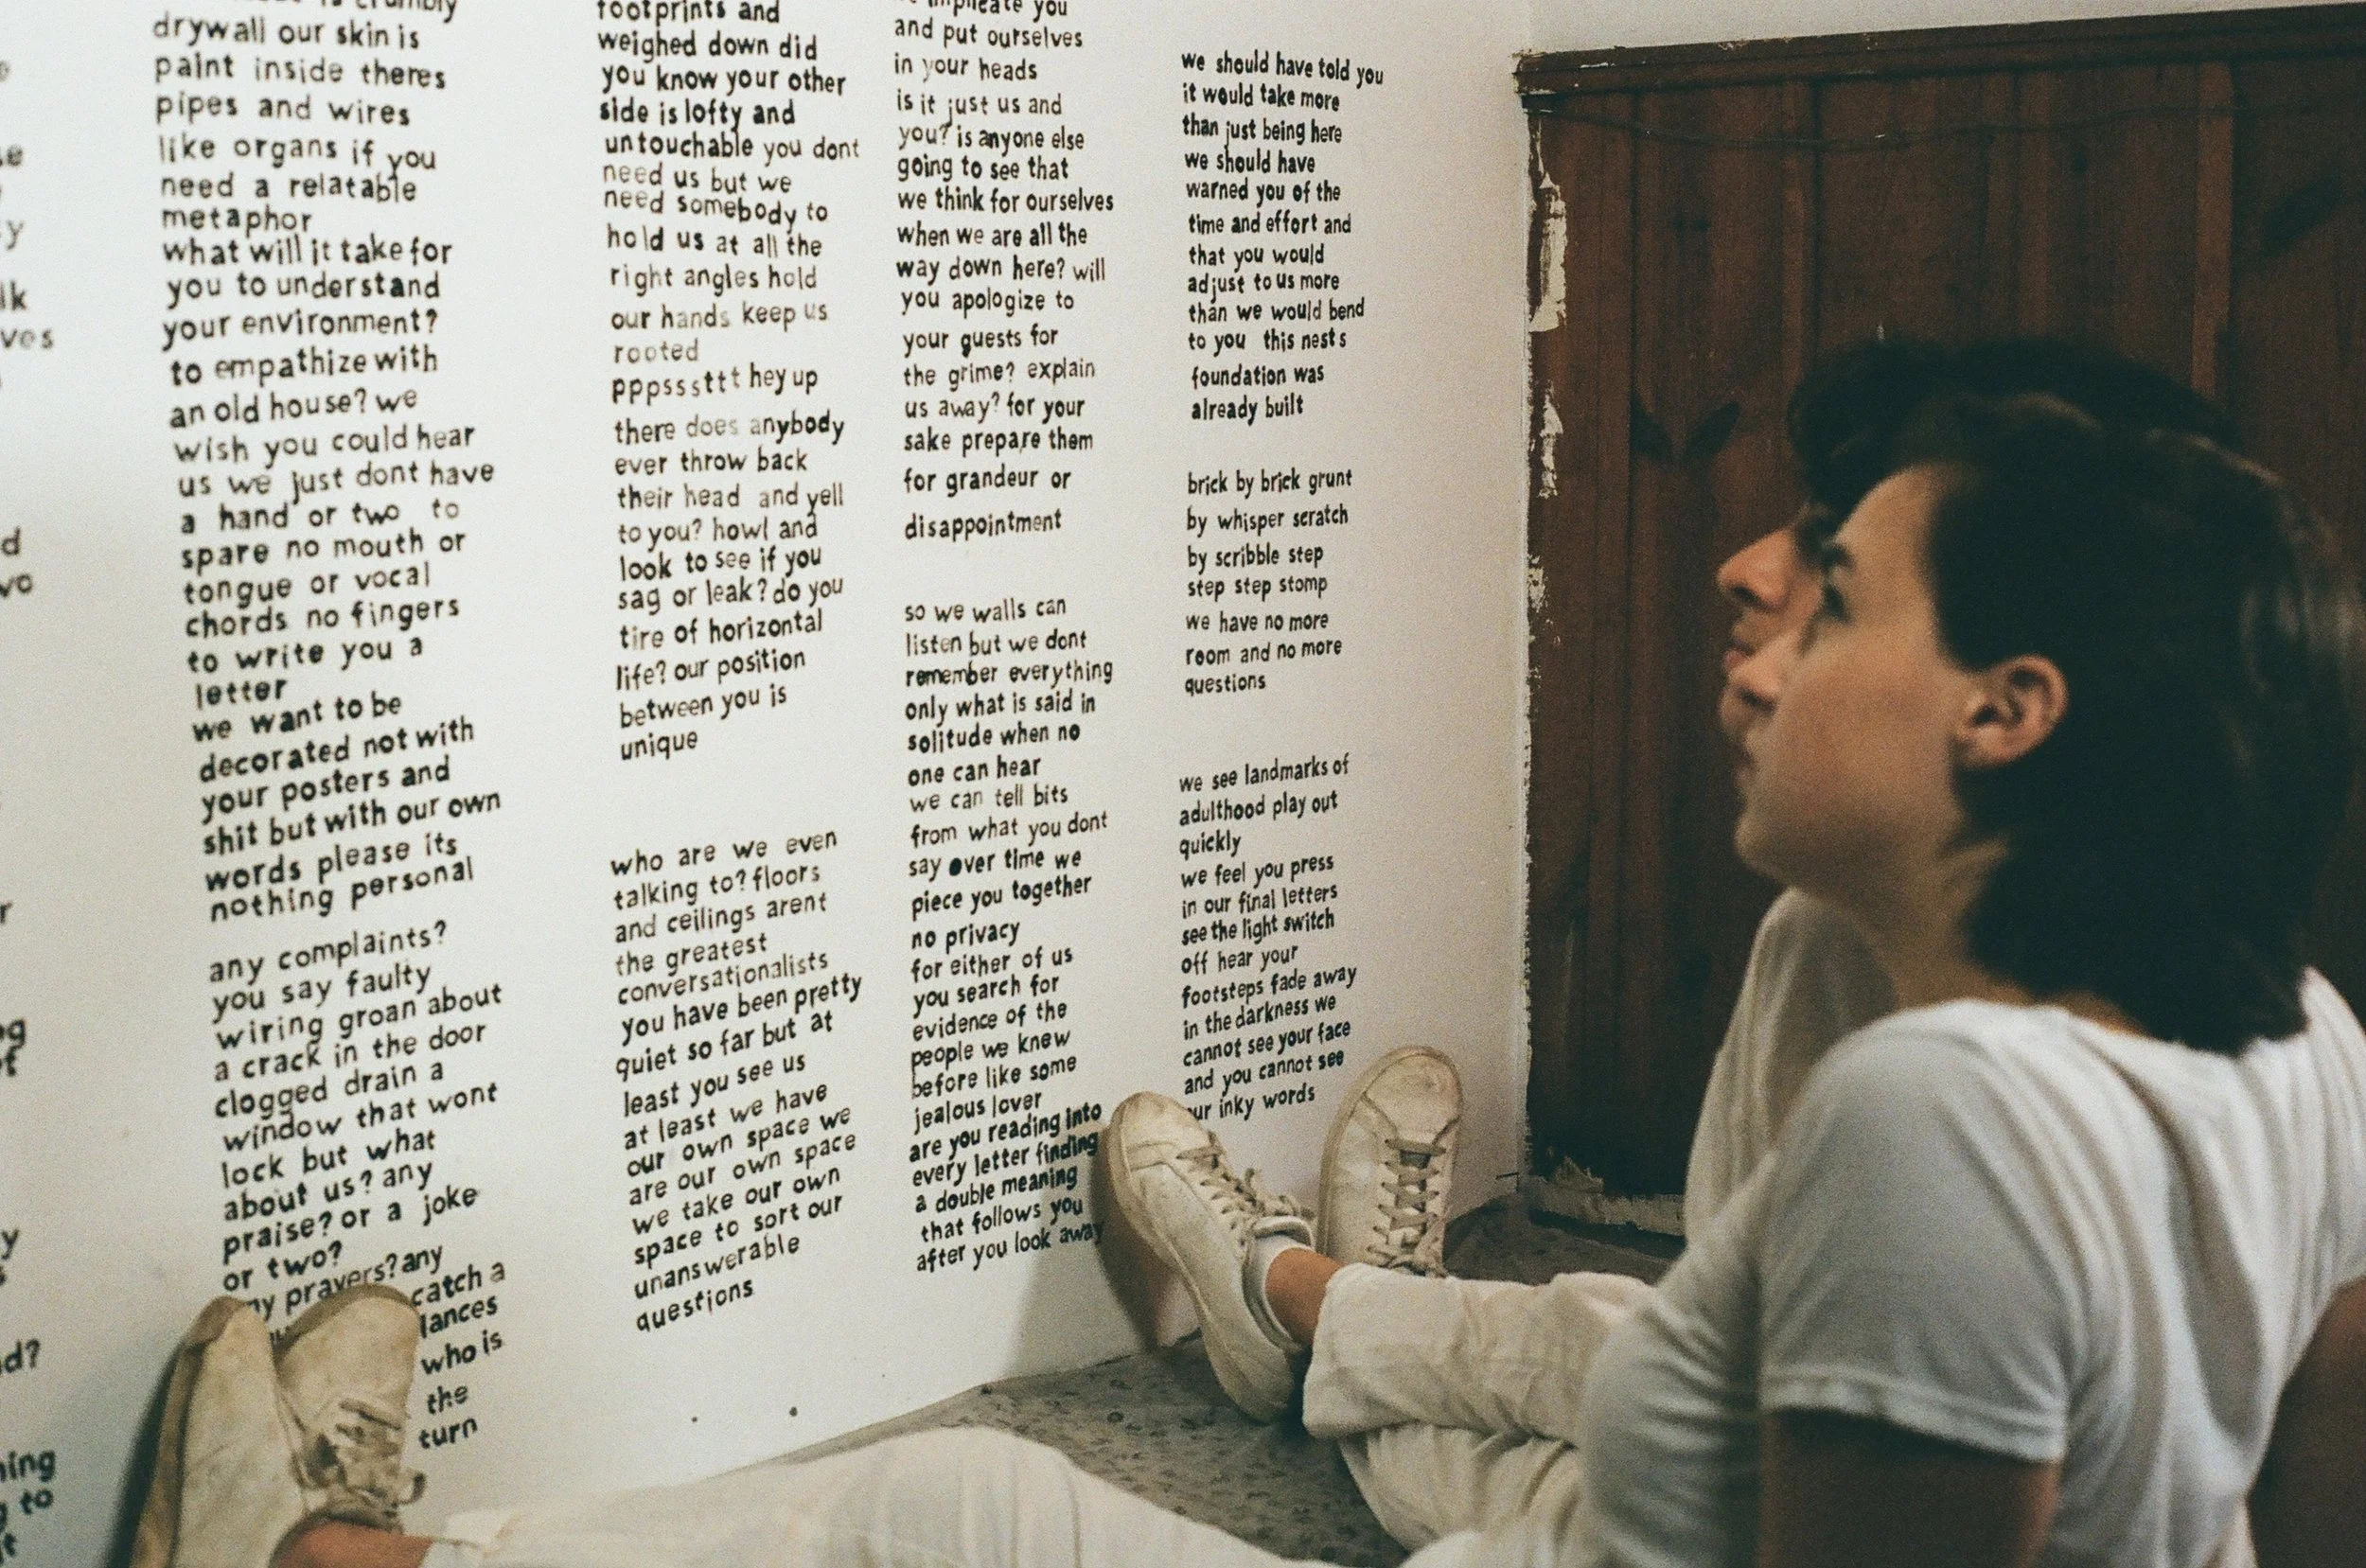 is crumbly
drywall our skin is
paint inside theres
pipes and wires
like organs if you
need a relatable
metaphor
what will it take for
you to understand
your environment?
to empathize with
an old house? we
wish you could hear
us we just dont have
a hand or two to
spare no mouth or
tongue or vocal
chords no fingers
to write you a
letter
we want to be
decorated not with
your posters and
shit but with our own
words please its
nothing personal
any complaints?
you say faulty
wiring groan about
a crack in the door
clogged drain a
window that wont
lock but what
about us? any
praise? or a joke
or two?
prayers? any
catch a
who is
the
turn
footprints and
weighed down did
you know your other
side is lofty and
untouchable you dont
need us but we
need somebody to
hold us at all the
right angles hold
our hands keep us
rooted
pppsssttt hey up
there does anybody
ever throw back
their head and yell
to you? howl and
look to see if you
sag or leak? do you
tire of horizontal
life? our position
between you is
unique
who are we even
talking to? floors
and ceilings arent
the greatest
conversationalists
you have been pretty
quiet so far but at
least you see us
at least we have
our own space we
are our own space
we take our own
space to sort our
unanswerable
questions
implicate you
and put ourselves
in your heads
is it just us and
you? is anyone else
going to see that
we think for ourselves
when we are all the
way down here? will
you apologize to
your guests for
the grime? explain
us away? for your
sake prepare them
for grandeur or
disappointment
so we walls can
listen but we dont
remember everything
only what is said in
solitude when no
one can hear
we can tell bits
from what you dont
say over time we
piece you together
no privacy
for either of us
you search for
evidence of the
people we knew
before like some
jealous lover
are you reading into
every letter finding
a double meaning
that follows you
after you look away
we should have told you
it would take more
than just being here
we should have
warned you of the
time and effort and
that you would
adjust to us more
than we would bend
to you this nests
foundation was
already built
brick by brick grunt
by whisper scratch
by scribble step
step step stomp
we have no more
room and no more
questions
we see landmarks of
adulthood play out
quickly
we feel you press
in our final letters
see the light switch
off hear your
footsteps fade away
in the darkness we
cannot see your face
and you cannot see
our inky words